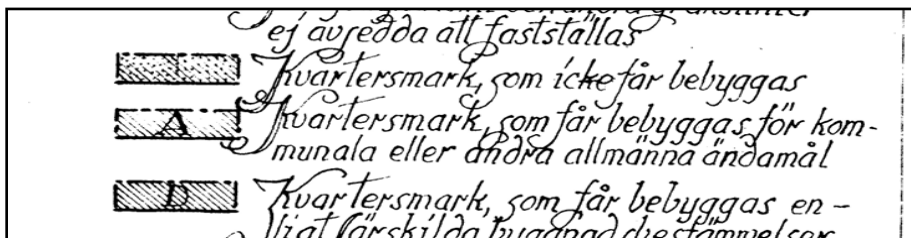 ej avsedda att fastställas
Kvartersmark, som icke får bebyggas
A
Kvartersmark, som får bebyggas för kom-
munala eller andra allmänna ändamål
Kvartersmark, som får bebyggas en-
ligt särskilda